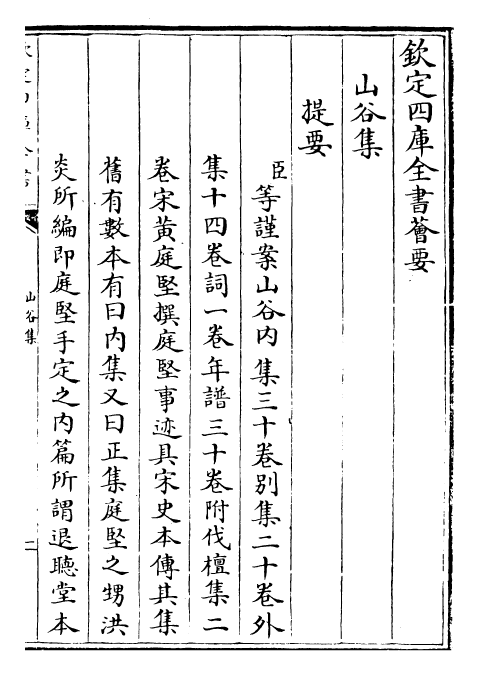 欽定四庫全書薈要
山谷集
提要
臣等謹案山谷内集三十卷别集二十卷外
集十四卷詞一卷年譜三十卷附伐檀集二
卷宋黄庭堅撰庭堅事迹具宋史本傳其集
舊有數本有曰内集又曰正集庭堅之甥洪
炎所編即庭堅手定之内篇所謂退聽堂本
山谷集